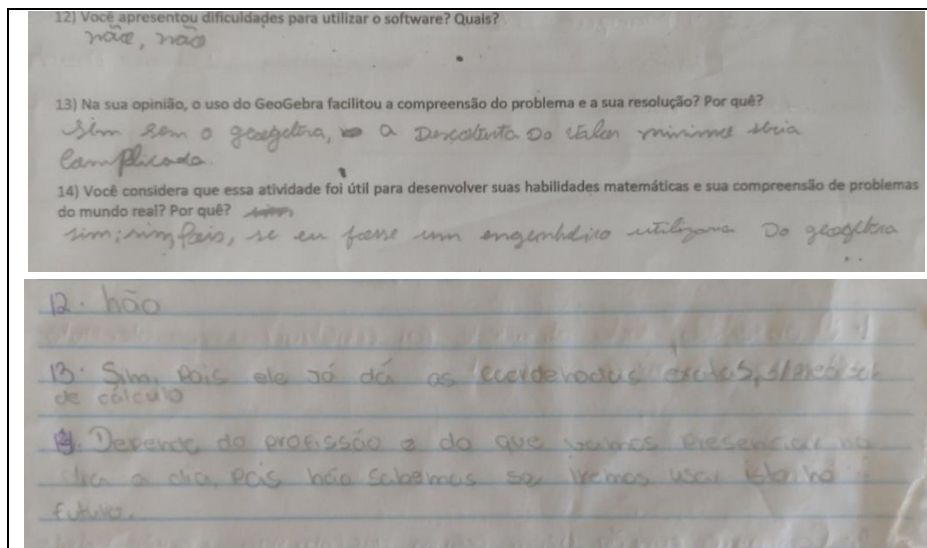 12) Você apresentou dificuldades para utilizar o software? Quais?
não, não
13) Na sua opinião, o uso do GeoGebra facilitou a compreensão do problema e a sua resolução? Por quê?
Sim sem o geogebra, a Descoberta Do valor minimo seria
Complicada.
14) Você considera que essa atividade foi útil para desenvolver suas habilidades matemáticas e sua compreensão de problemas
do mundo real? Por quê?
sim; sim, pois, se eu fosse um engenheiro utilizava Do geogebra
12. não
13. Sim, pois ele já dá as exatas,
de cálculo
Depende da profissão e do que vamos presenciar no
dia a dia, pois não sabemos se iremos usar isto no
futuro.